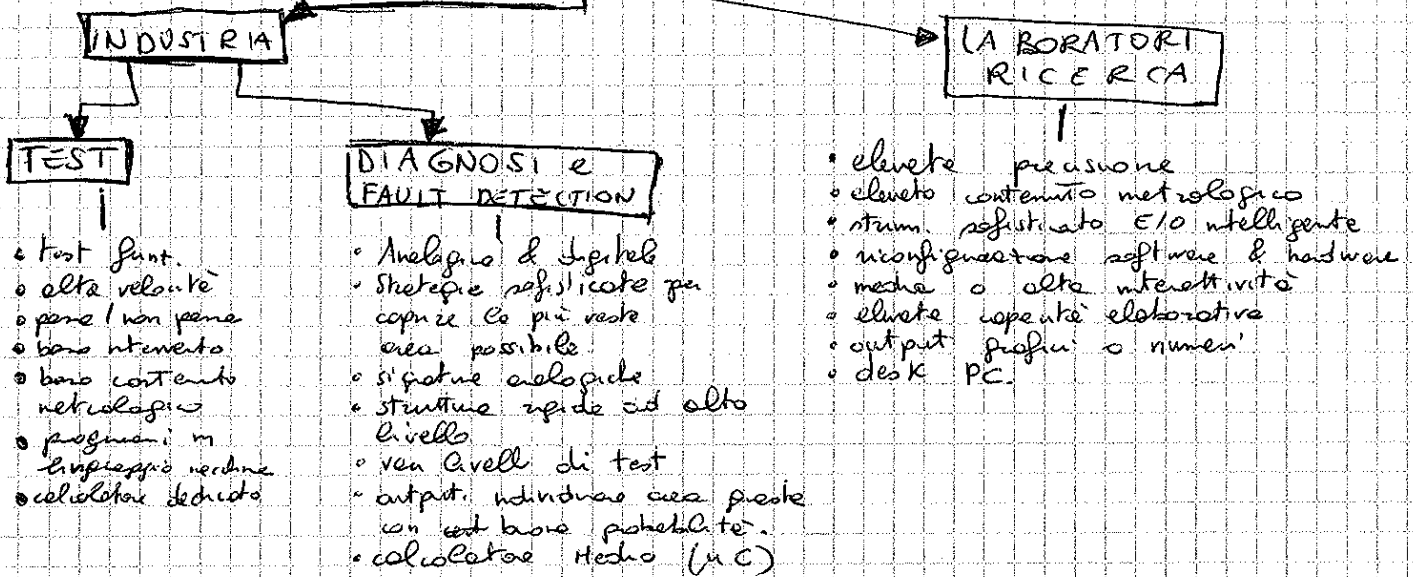 INDUSTRIA
TEST
• test funt.
• alta velocità
• passa / non passa
• basso intervento
• basso contenuto
metrologico
• programmi in
linguaggio macchina
• calcolatore dedicato
DIAGNOSI e
FAULT DETECTION
• Analogico & digitale
• Strategie sofisticate per
coprire la più vasta
area possibile
• signature analogiche
• strutture rigide ad alto
livello
• vari livelli di test
• output. individuare area guasta
con buona probabilità.
• calcolatore Medio (μC)
LABORATORI
RICERCA
• elevata precisione
• elevato contenuto metrologico
• strum. sofisticato E/O intelligente
• riconfigurazione software & hardware
• media o alta interattività
• elevata capacità elaborativa
• output grafici o numeri
• desk PC.